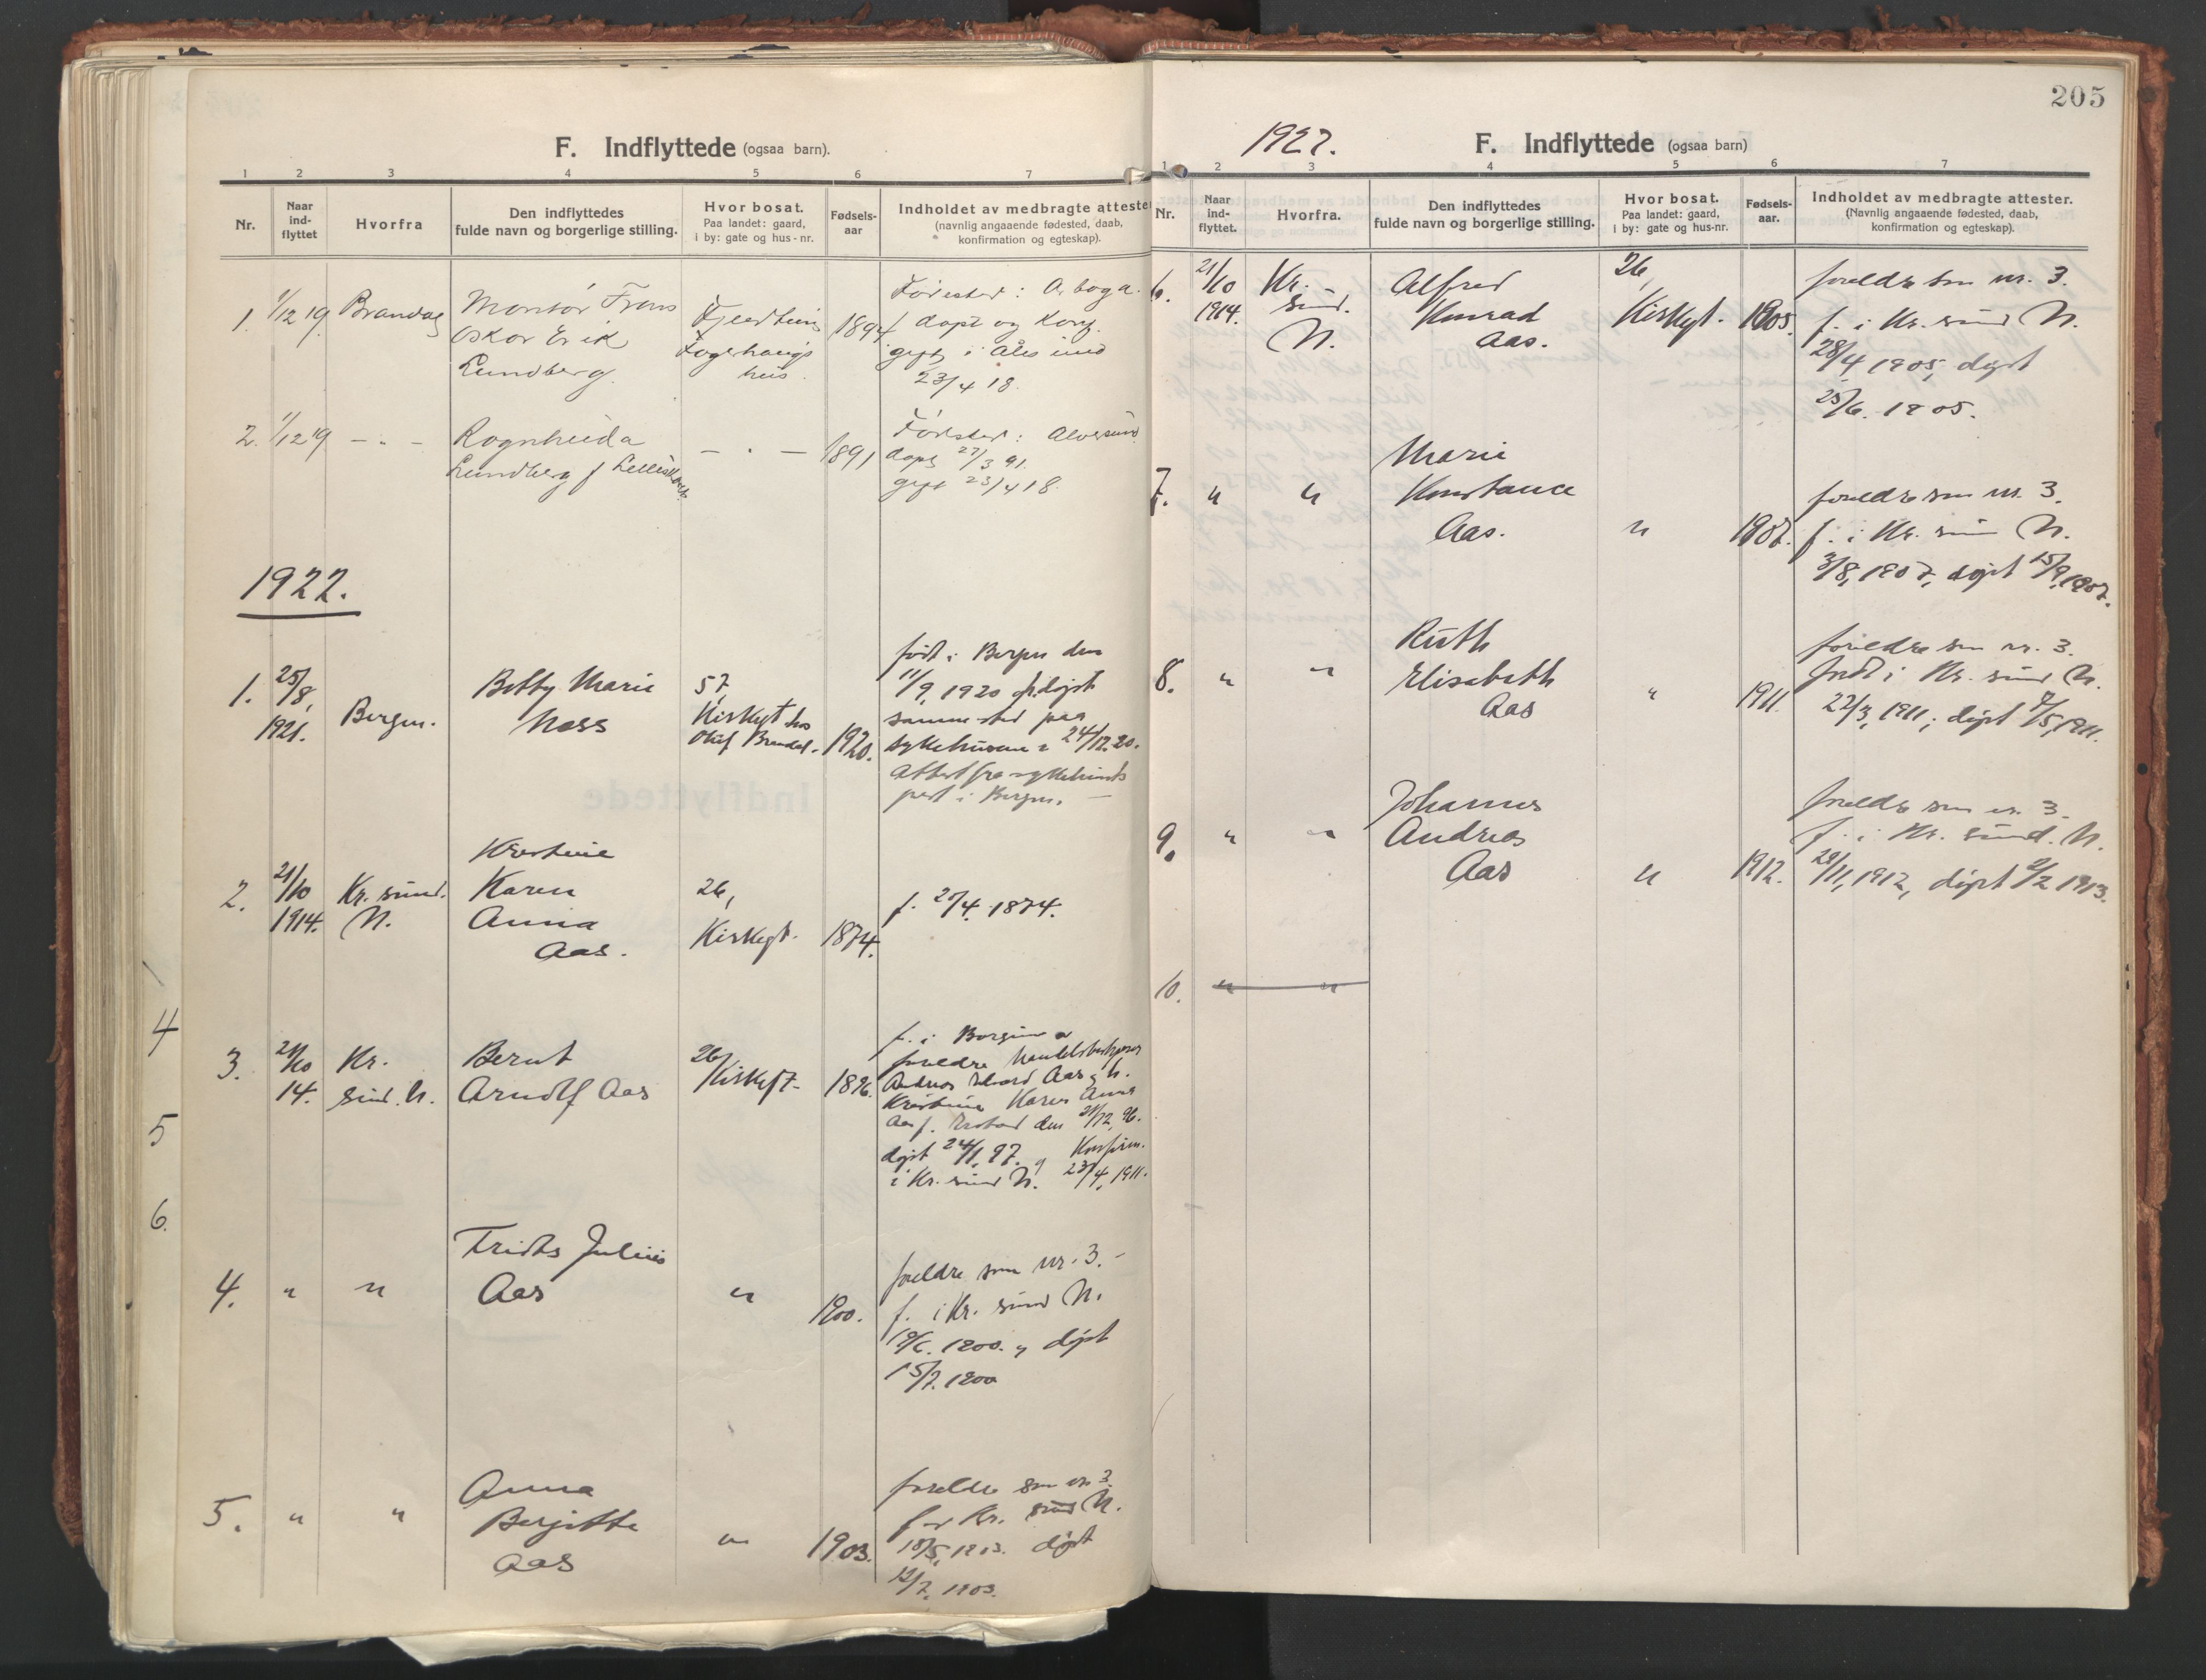 F. Indflyttede (ogsaa barn).
1 2 3 4 5 6 7
Nr.
Naar ind-flyttet
Hvorfra
Den indflyttedes fulde navn og borgerlige stilling.
Hvor bosat. Paa landet: gaard, i by: gate og hus-nr.
Fødsels-aar
Indholdet av medbragte attester (navnlig angaaende fødested, daab, konfirmation og egteskap).
1. 1/12 19 Brandal
Montør Frans
Oskar Erik
Lundberg.
hus.
1894
Födested: Arboga.
döpt og Konf.
gift i Ålesund
23/4 18.
2. 1/12 19 — " —
Ragnheida
Lundberg f
— " — 1891
Födested: Alversund
döpt 27/3 91.
gift 23/4 18.
1922.
1. 25/8, 1921. Bergen.
Betty Marie
Ness
57,
Kirkegt hos
Oluf Brandal.
1920.
født i Bergen den
11/9, 1920 døpt
sammested paa
sykehuset 24/12.20.
Attest fra sykehus
prest i Bergen. —
2. 21/10 1914. Kr. sund. N.
Kristine
Karen
Anna
Aas.
26,
Kirkegt. 1874.
f. 20/4. 1874.
3. 21/10 14. Kr. sund. N.
Bernt
Arnolf Aas
26,
Kirkegt. 1896.
f. i
foreldre
Andreas Edvard Aas og h.
Kristine Karen Anna
Aas f. den 21/12, 96.
døpt 24/1, 97. og Konfirm.
i Kr. sund N. 23/4, 1911.
4. " "
Fridts Julius
Aas
" 1900.
foreldre som nr. 3. -
f. i Kr. sund N.
19/6. 1900. døpt
15/7. 1900
5. " "
Anna
Bergitte
Aas
" 1903.
foreldre som nr 3
f. Kr. sund N.
18/5, 1903. døpt
12/7. 1903.
4
5
6.
205
1922.
F. Indflyttede (ogsaa barn)
1 2 3 4 5 6 7
Nr.
Naar ind-flyttet.
Hvorfra.
Den indflyttedes fulde navn og borgerlige stilling.
Hvor bosat. Paa landet: gaard, i by: gate og hus-nr.
Fødsels-aar.
Indholdet av medbragte attester. (Navnlig angaaende fødested, daab, konfirmation og egteskap).
6. 21/10 1914. Kr. - sund. N.
Alfred
Konrad
Aas.
26,
Kirkegt. 1905.
foreldre som nr. 3.
f. i Kr. sund N.
28/4 1905, døpt
25/6. 1905.
7. " "
Marie
Konstance
Aas.
" 1907.
foreldre som nr. 3.
f. i Kr. sund N.
3/8, 1907, døpt 15/9, 1907.
8. " "
Ruth
Elisabeth
Aas
" 1911.
foreldre som nr. 3.
født i Kr. sund N.
22/3, 1911, døpt 7/5, 1911.
9. " "
Johannes
Andreas
Aas
" 1912.
foreldre som nr. 3.
f. i Kr. sund. N.
28/11, 1912, døpt 2/2 1913.
10. " "